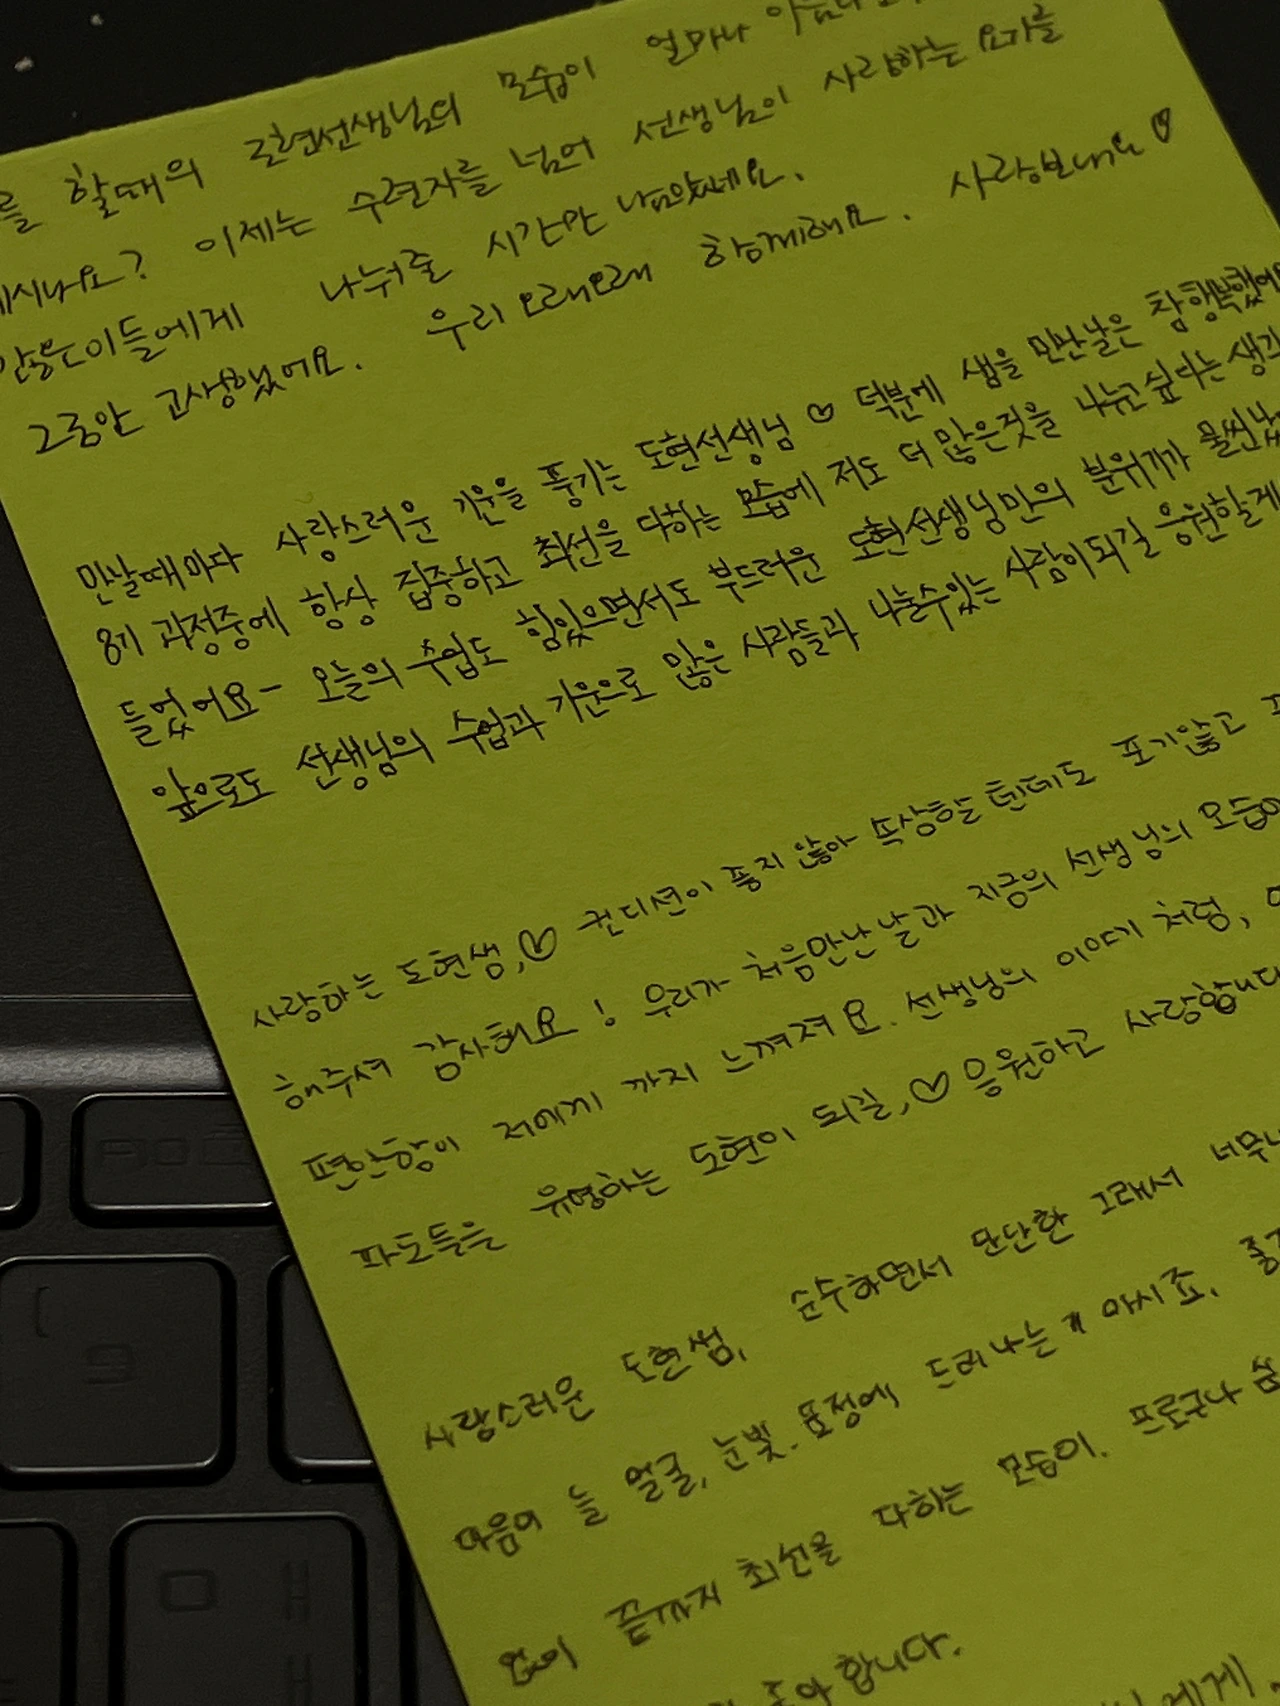 를 할때의 도현선생님의 모습이 얼마나
계시나요? 이제는 수련자를 넘어 선생님이 사랑하는 요가를
많은이들에게 나눠줄 시간만 남았네요.
그동안 고생했어요. 우리 오래오래 함께해요. 사랑보내요♡
만날때마다 사랑스러운 기운을 풍기는 도현선생님♡ 덕분에 샘을 만난날은 참 행복했어요
8기 과정중에 항상 집중하고 최선을 다하는 모습에 저도 더 많은것을 나누고싶다는 생각
들었어요- 오늘의 수업도 힘있으면서도 부드러운 도현선생님만의 분위기가 물씬났
앞으로도 선생님의 수업과 기운으로 많은 사람들과 나눌수있는 사람이되길 응원할게
사랑하는 도현생,♡ 컨디션이 좋지 않아 속상할 텐데도 포기않고
해주셔 감사해요! 우리가 처음만난 날과 지금의 선생님의 모습이
편안함이 저에게 까지 느껴져요. 선생님의 이야기 처럼,
파도들을 유영하는 도현이 되길,♡ 응원하고 사랑합니다
사랑스러운 도현쌤, 순수하면서 단단한 그래서 너무나
마음이 늘 얼굴, 눈빛. 표정에 드러나는거 아시죠.
없이 끝까지 최선을 다하는 모습이. 프로구나
좋아합니다.
에게.